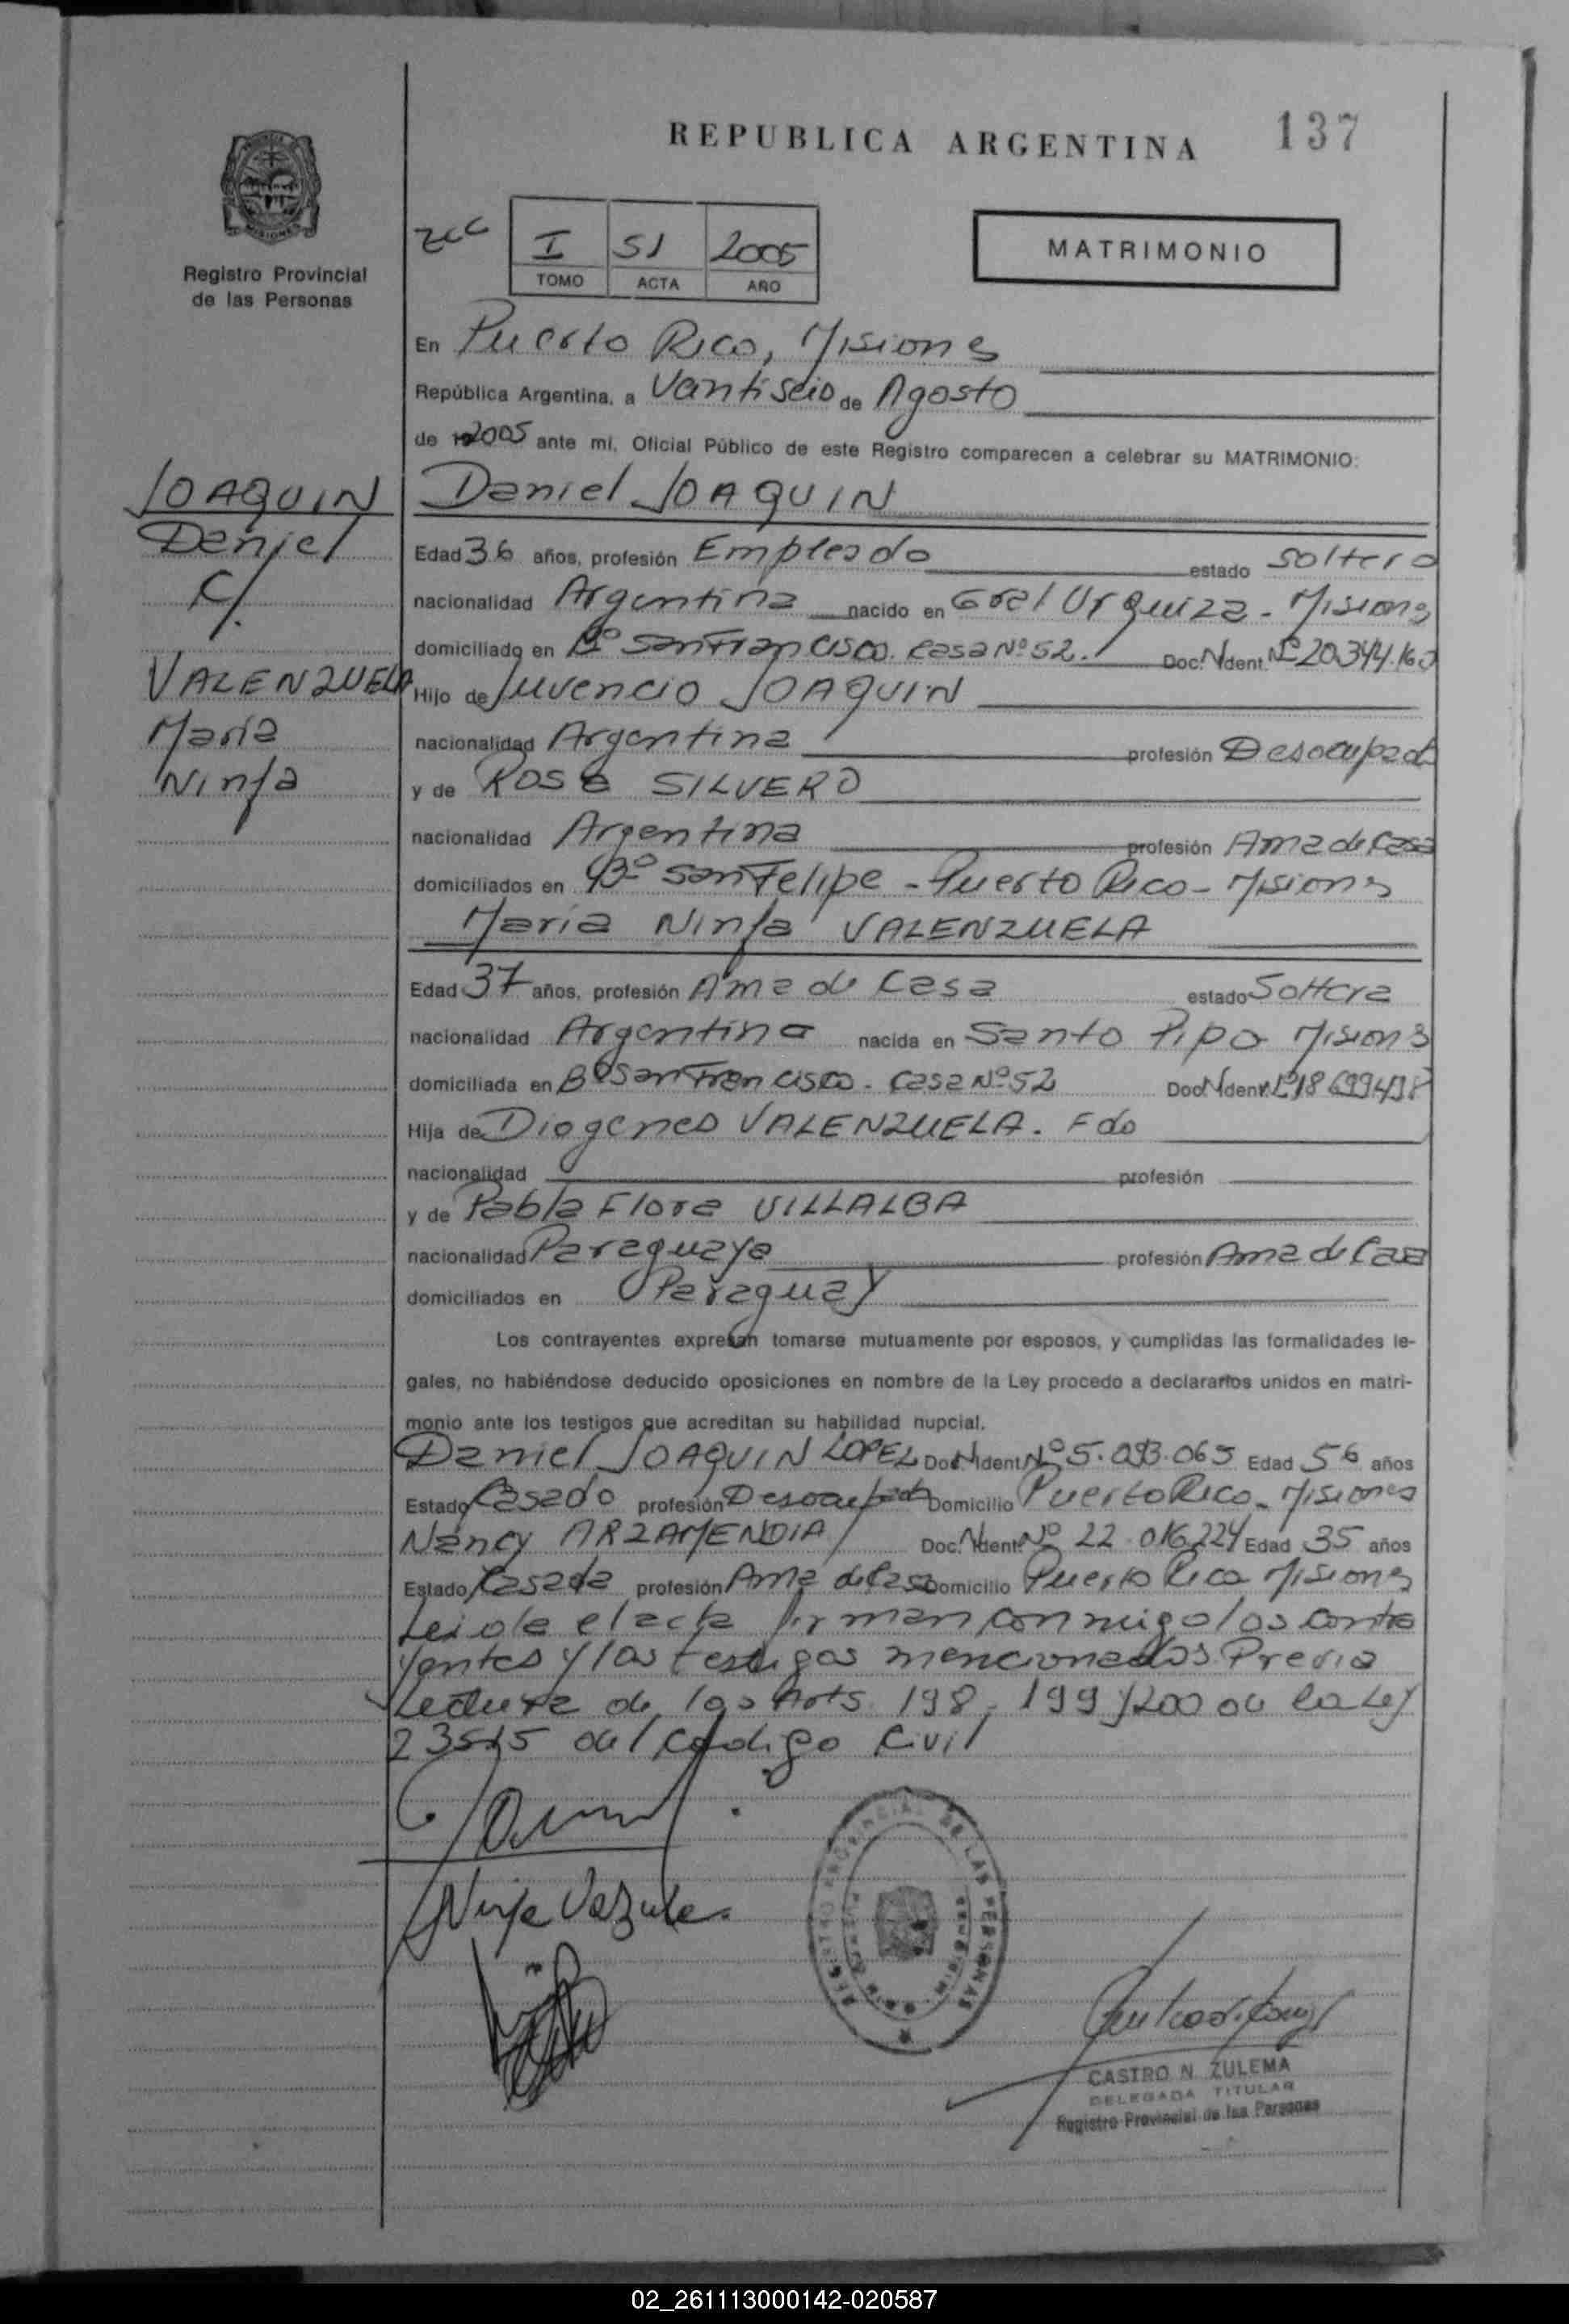 REPUBLICA ARGENTINA 137
Registro Provincial
de las Personas
I 51 2005
TOMO ACTA AÑO
MATRIMONIO
En Puerto Rico, Misiones
República Argentina, a Vantiseis de Agosto
de 2005 ante mí, Oficial Público de este Registro comparecen a celebrar su MATRIMONIO:
JOAQUIN
Daniel
c/.
VALENZUELA
María
Ninfa
Daniel JOAQUIN
Edad 36 años, profesión Empleado estado Soltero
nacionalidad Argentina nacido en Gral Urquiza - Misiones
domiciliado en Bº San Francisco. Casa Nº 52. Doc. Ident. Nº 20.344.160
Hijo de Juvencio JOAQUIN
nacionalidad Argentina profesión Desocupado
y de Rosa SILVERO
nacionalidad Argentina profesión Ama de Casa
domiciliados en Bº San Felipe - Puerto Rico - Misiones
María Ninfa VALENZUELA
Edad 37 años, profesión Ama de Casa estado Soltera
nacionalidad Argentina nacida en Santo Pipo Misiones
domiciliada en Bº San Francisco. Casa Nº 52 Doc. N Ident. Nº 18 699.498
Hija de Diogenes VALENZUELA. Fdo
nacionalidad profesión
y de Pabla Flora VILLALBA
nacionalidad Paraguaya profesión Ama de Casa
domiciliados en Paraguay
Los contrayentes expresan tomarse mutuamente por esposos, y cumplidas las formalidades le-
gales, no habiéndose deducido oposiciones en nombre de la Ley procedo a declararlos unidos en matri-
monio ante los testigos que acreditan su habilidad nupcial.
Daniel JOAQUIN LOPEZ Doc. N Ident. Nº 5.093.065 Edad 56 años
Estado Casado profesión Desocupado Domicilio Puerto Rico - Misiones
Nancy ARZAMENDIA Doc. N Ident. Nº 22.016.224 Edad 35 años
Estado Casada profesión Ama de Casa Domicilio Puerto Rico Misiones
Leida el acta firman conmigo los contra
yentes y los testigos mencionados Previa
Lectura de los Arts. 198, 199 y 200 de la Ley
23515 del Codigo Civil
REGISTRO PROVINCIAL DE LAS PERSONAS
CASTRO N. ZULEMA
DELEGADA TITULAR
Registro Provincial de las Personas
02_261113000142-020587